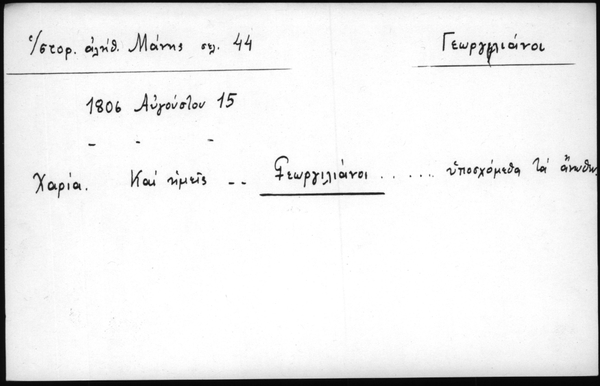 Ἱστορ. ἀλήθ. Μάνης σελ. 44
Γεωργιλιάνοι
1806 Αὐγούστου 15
- - -
Χαρία. Καί ἡμεῖς -- Γεωργιλιάνοι ...... ὑποσχόμεθα τά ἄνωθεν